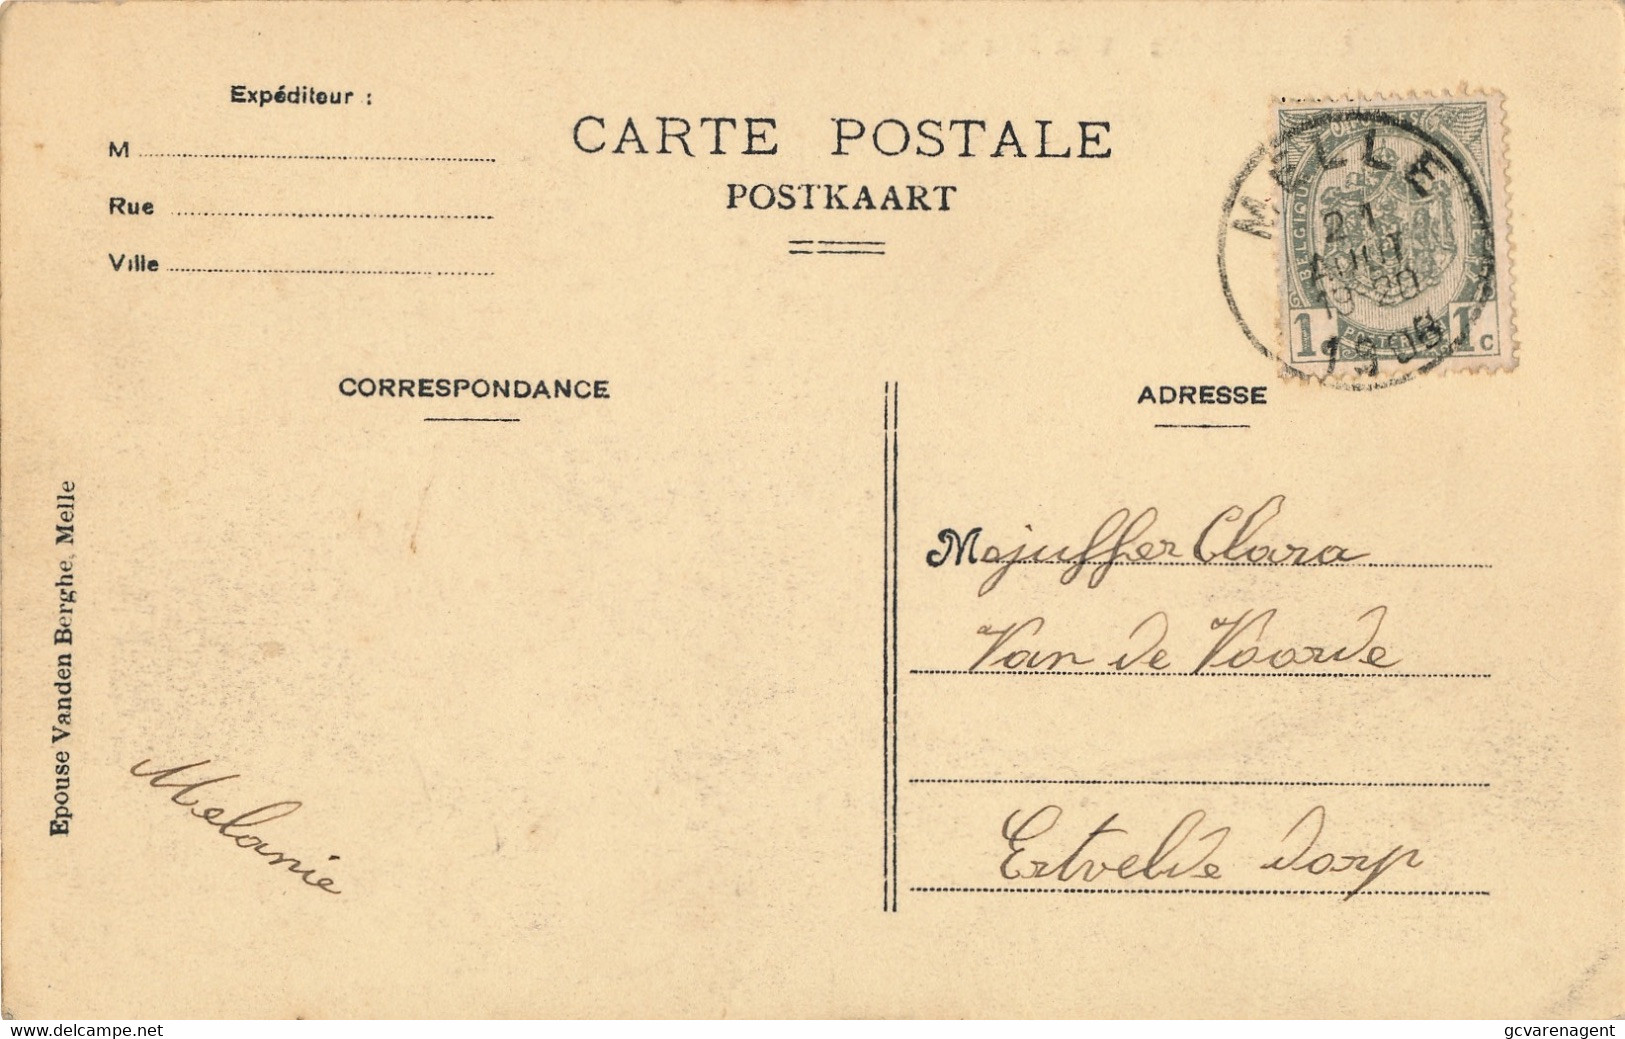 Expéditeur :
M
Rue
Ville
CARTE POSTALE
POSTKAART
MELLE
21
AOUT
19-20
1908
BELGIQUE
BELGIE
1
1c
CORRESPONDANCE
ADRESSE
Epouse Vanden Berghe, Melle
Melanie
Mejuffer Clara
Van de Voorde
Ertvelde dorp
www.delcampe.net
gcvarenagent